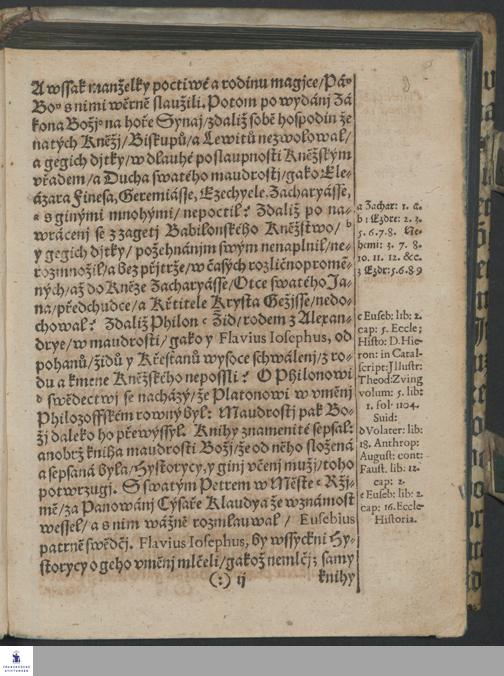 A wssak manželky poctiwé a rodinu magjce / Páᵒ
Boᵒ s nimi wěrně slaužili. Potom po wydánj Zá
kona Božjᵒ na hoře Synaj / zdaliž sobě hospodin že
natých Kněžj / Biskupů / a Lewitů nezwolowal /
a gegich djtky / w dlauhé poslaupnosti Kněžským
vřadem / a Ducha swatého maudrostj / gako Ele-
ázara Finesa, Geremiásse, Ezechyele, Zacharyásse,
ᵃ s ginými mnohými / nepoctil? Zdaliž po na-
wrácenj se z zagetj Babilonského Kněžstwo / ᵇ
y gegich djtky / požehnánjm swým nenaplnil / ne-
rozmnožil / a bez přjtrže / w časých rozličnoproměn-
ných / až do Kněze Zacharyásse / Otce swatého Ja-
na / předchudce / a Křtitele Krysta Gežjsse / nedo-
chowal? Zdaliž Philon ᶜ Žid / rodem z Alexan-
drye / w maudrosti / gako y Flavius Iosephus, od
pohanů / židů y Křesťanů wysoce schwálenj / z ro-
du a kmene Kněžského neposslí? O Philonowi
ᵈ swědectwj se nacházý / že Platonowi w vměnj
Philozoffském rowný byl: Maudrostj pak Bo-
žj daleko ho přewýssyl. Knihy znamenité sepsal:
anobrž kniha maudrosti Božj / že od něho složená
a sepsaná byla / Hystorycy / y ginj včenj mužj / toho
potwrzugj. S swatým Petrem w Městě ᵉ Ržj-
mě / za Panowánj Cýsaře Klaudya že w známost
wessel / a s nim wážně rozmlauwal / Eusebius
patrně swědčj. Flavius Iosephus, by wssyckni Hy-
storycy o geho vměnj mlčeli / gakož nemlčj; samy
(:) ij
knihy
a Zachar: 1. &.
b 1 Ezdre: 2. 3.
5. 6. 7. 8. Ne-
hemi: 3. 7. 8.
10. 11. 12. &c.
3 Ezdr: 5. 6. 8 9
c Euseb: lib: 2.
cap: 5. Eccle;
Histo: D. Hie-
ron: in Catal-
script: Jllustr:
Theod: Zving
volum: 5. lib:
1. fol. 1104.
Suid:
d Volater: lib:
18. Anthrop:
August: cont:
Faust. lib. 12.
cap: 2.
e Euseb: lib: 2.
cap: 16. Eccle-
Historia.